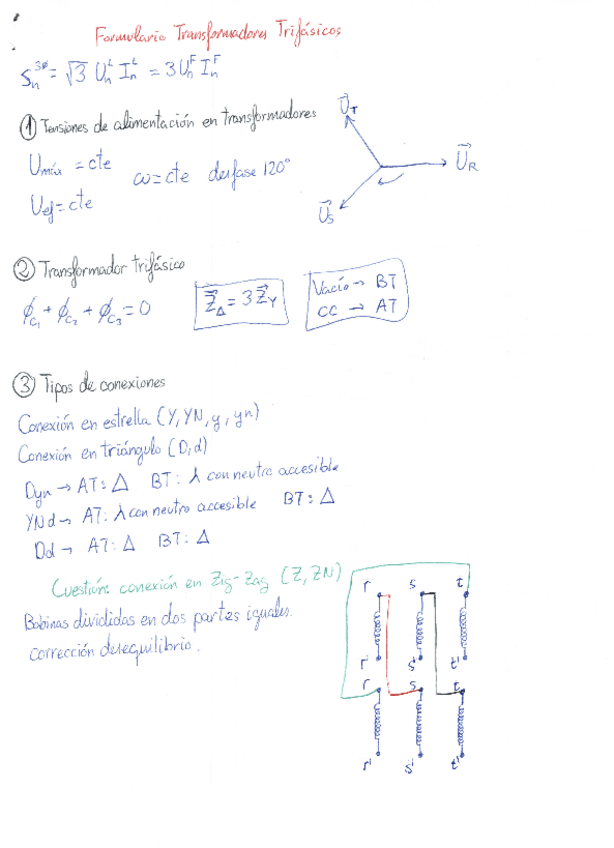 Formulario Transformadores Trifásicos
Sn³ᶠ = √3 Unᴸ Inᴸ = 3 Unᶠ Inᶠ
① Tensiones de alimentación en transformadores
Umáx = cte
ω = cte desfase 120°
Uef = cte
U⃗T
U⃗R
U⃗S
② Transformador trifásico
ϕC₁ + ϕC₂ + ϕC₃ = 0
Z⃗Δ = 3 Z⃗Y
Vacío → BT
CC → AT
③ Tipos de conexiones
Conexión en estrella (Y, YN, y, yn)
Conexión en triángulo (D, d)
Dyn → AT: Δ BT: ⅄ con neutro accesible
YNd → AT: ⅄ con neutro accesible BT: Δ
Dd → AT: Δ BT: Δ
Cuestión: conexión en Zig-Zag (Z, ZN)
Bobinas divididas en dos partes iguales.
corrección desequilibrio.
r s t
r' s' t'
r s t
r' s' t'